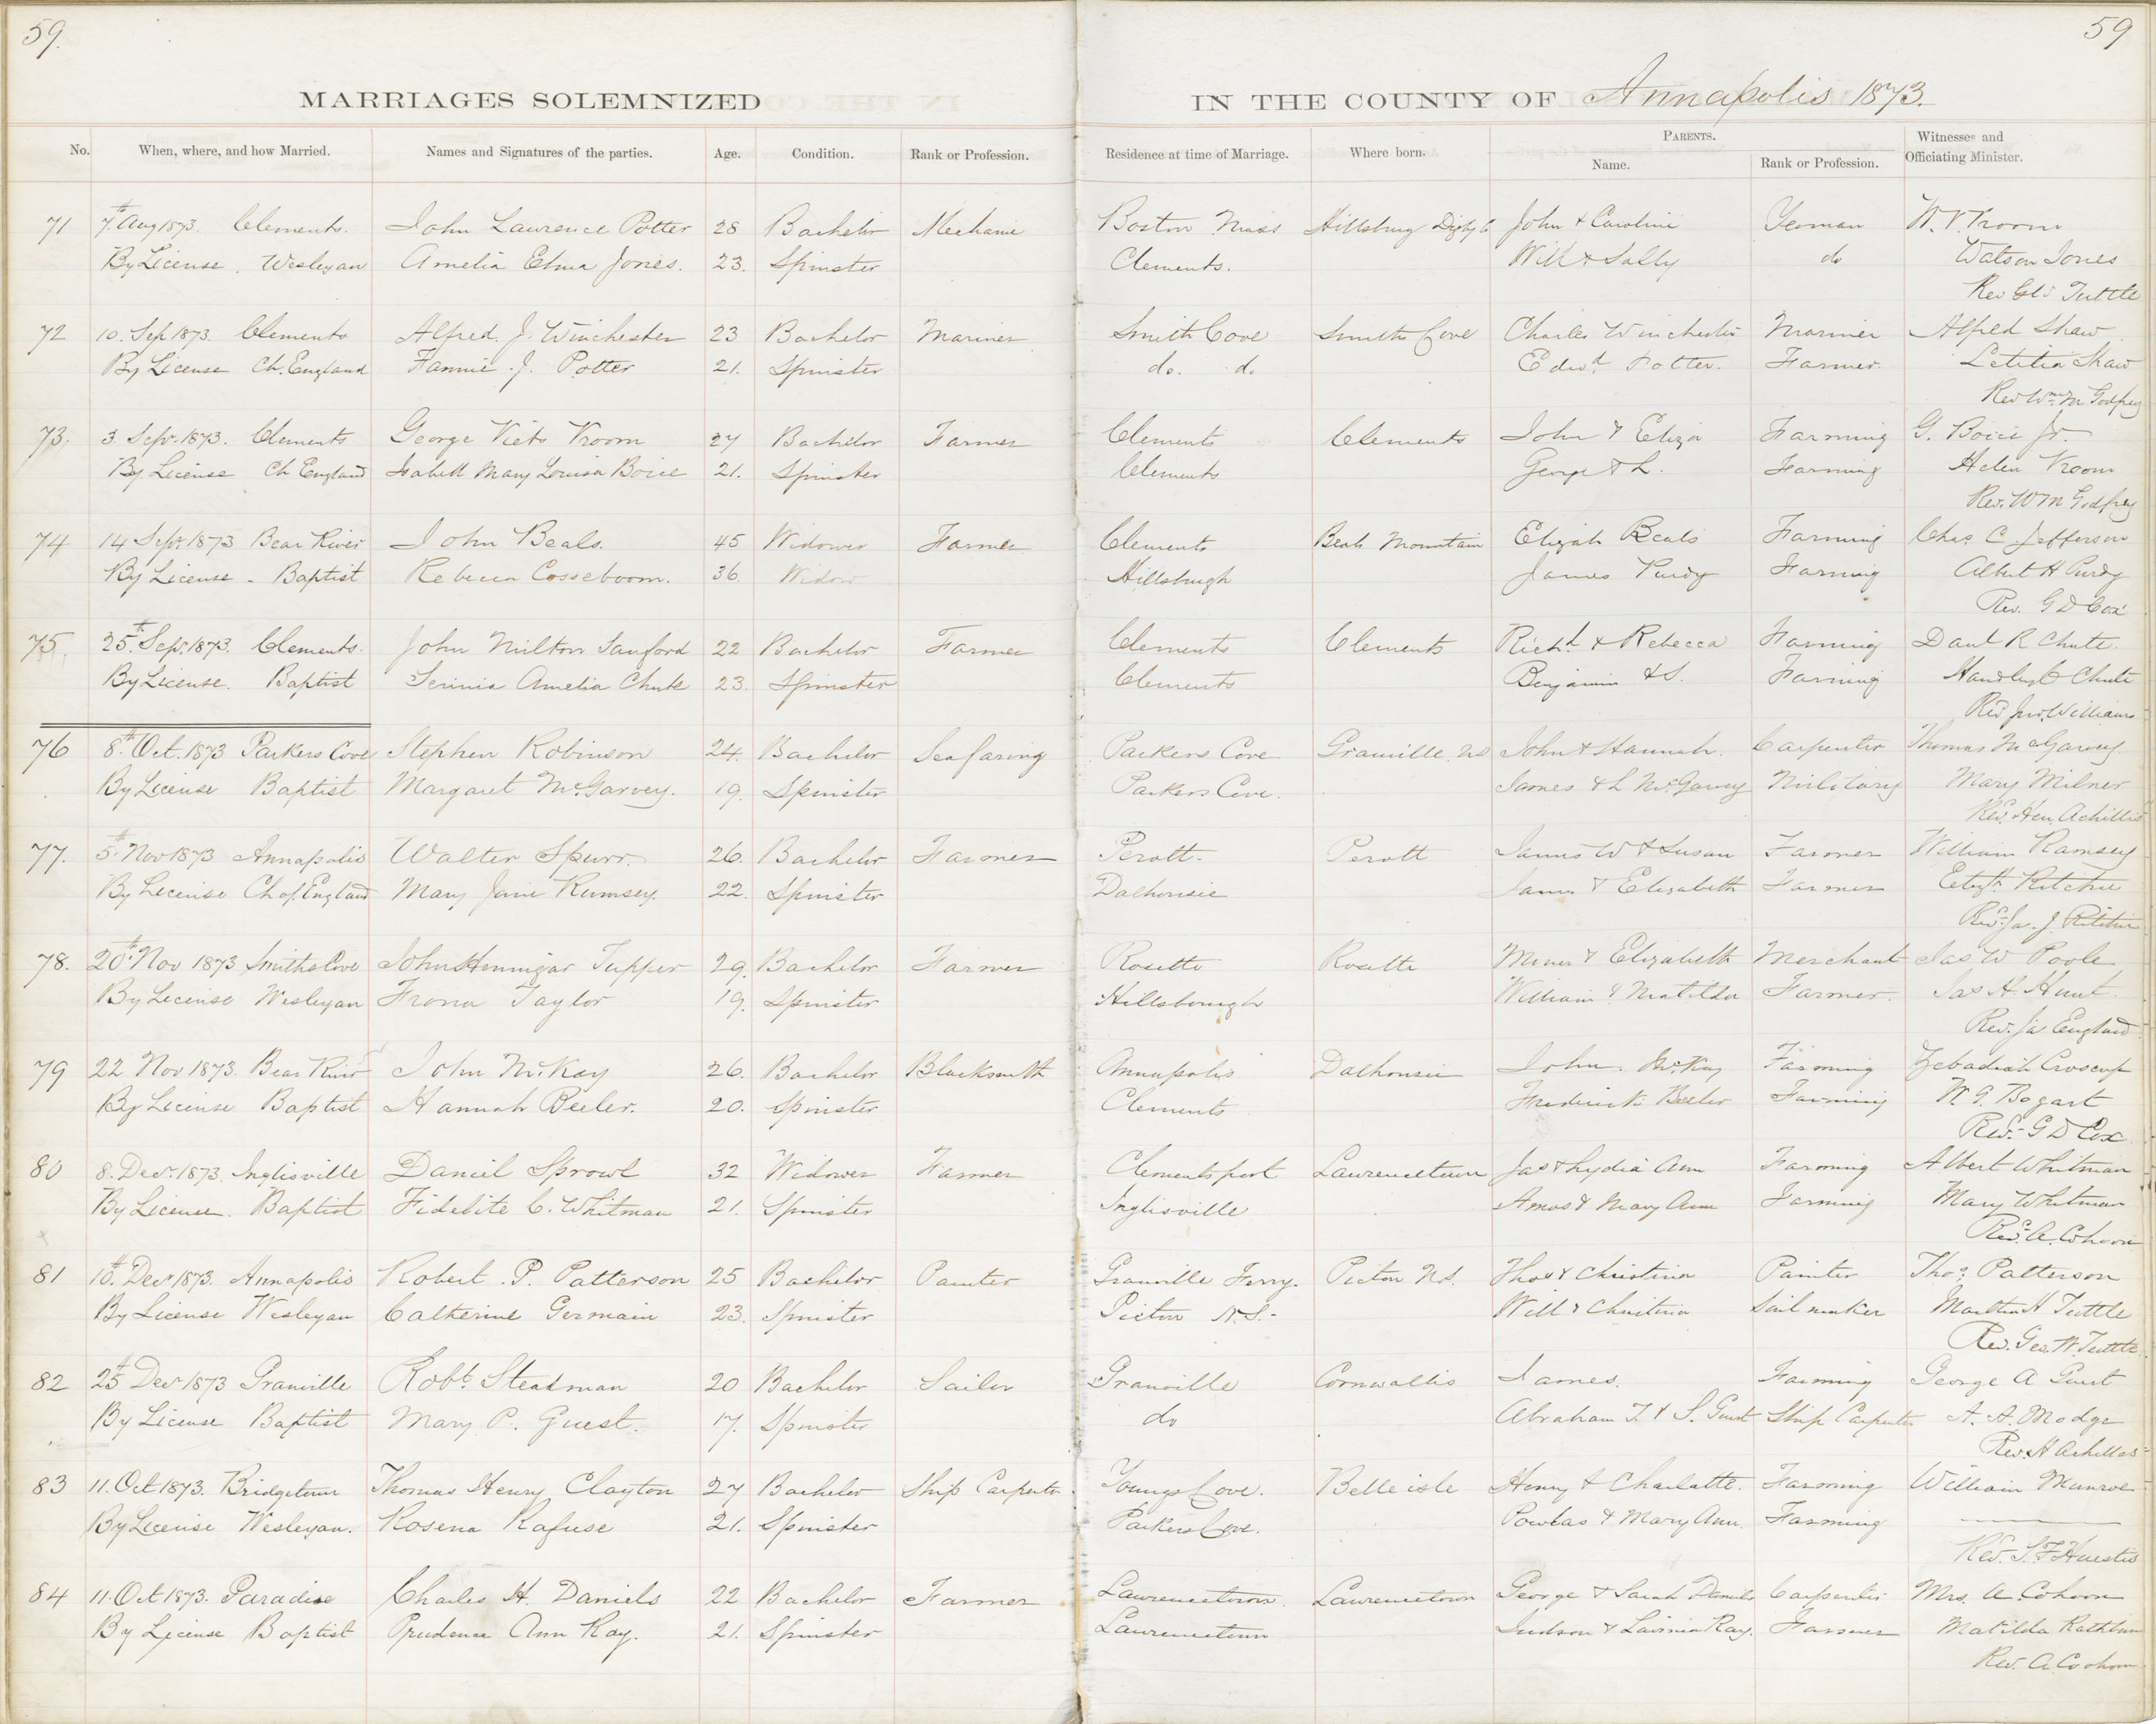 59.
59
MARRIAGES SOLEMNIZED IN THE COUNTY OF Annapolis 1873.
No. When, where, and how Married. Names and Signatures of the parties. Age. Condition. Rank or Profession. Residence at time of Marriage. Where born. PARENTS. Witnesses and
Name. Rank or Profession. Officiating Minister.
71 7th Aug 1873. Clements. John Lawrence Potter 28 Bachelor Mechanic Boston Mass Hillsburg Digby Co John & Caroline Yeoman W. V. Vroom
By License, Wesleyan Amelia Etma Jones. 23. Spinster Clements. Will & Sally do Watson Jones
Rev Tuttle
72 10. Sep 1873. Clements Alfred. J. Winchester 23 Bachelor Mariner Smith Cove Smiths Cove Charles Winchester Mariner Alfred Shaw
By License Ch. England Fannie. J. Potter 21. Spinster do. do. Edwd Potter. Farmer. Letitia Shaw
Rev Wm M Godfrey
73. 3 Sepr. 1873. Clements George Viets Vroom 27 Bachelor Farmer Clements Clements John & Eliza Farming G. Boice Jr.
By License Ch England Isabell Mary Louisa Boice 21. Spinster Clements George & L. Farming Helen Vroom
Rev. W M Godfrey
74 14 Sepr. 1873 Bear River John Beals. 45 Widower Farmer Clements Beals Mountain Elijah Beals Farming Chas C. Jefferson
By License - Baptist Rebecca Cosseboom. 36. Widow Hillsburgh James Purdy Farming Albert H Purdy
Rev. G D Cox
75. 25th Sepr. 1873. Clements. John Milton Sanford 22 Bachelor Farmer Clements Clements Richd & Rebecca Farming Danl R Chute.
By License. Baptist Serinia Amelia Chute 23. Spinster Clements Benjamin & S. Farming Handley C Chute
Rev Jno. Williams
76 8th Oct. 1873 Parkers Cove Stephen Robinson 24. Bachelor Seafaring Parkers Cove Granville. NS John & Hannah. Carpenter Thomas McGarvey.
By License Baptist Margaret McGarvey. 19. Spinster Parkers Cove. James & L McGarvey Military Mary Milner
Rev. Hen. Achilles
77. 5th Nov 1873 Annapolis Walter Spurr. 26. Bachelor Farmer Perott. Perott James W & Susan Farmer William Ramsey
By License Ch of England Mary Jane Rumsey. 22. Spinster Dalhousie James & Elizabeth Farmer Elizth Ritchie
Revd Ja. J. Ritchie
78. 20th Nov 1873 Smiths Cove John Hennigar Tupper 29. Bachelor Farmer Rosette Rosette Miner & Elizabeth Merchant Jas W Poole
By License Wesleyan Frona Taylor 19. Spinster Hillsborough William & Matilda Farmer. Jas A. Hunt.
Rev. Ja England.
79 22 Nov 1873. Bear River John McKay 26. Bachelor Blacksmith Annapolis Dalhousie John McKay Farming Zebadiah Croscup
By License Baptist Hannah Beeler. 20. Spinster Clements Frederick Beeler Farming W. G. Bogart
Revd. G D Cox
80 8. Decr. 1873. Inglisville Daniel Sprowl 32 Widower Farmer Clementsport Lawrencetown Jas & Lydia Ann Farming Albert Whitman
By License. Baptist Fidelite C. Whitman 21. Spinster Inglisville Amos & Mary Ann Farming Mary Whitman
Revd. A. Cohoon
81 10th Decr. 1873. Annapolis Robert. P. Patterson 25 Bachelor Painter Granville Ferry. Pictou N.S. Thos & Christina Painter Thos. Patterson
By License Wesleyan Catherine Germain 23. Spinster Pictou N.S. Will & Christina Sail maker Martha H Tuttle
Rev. Geo. W. Tuttle
82 25th Decr 1873 Granville Robt. Steadman 20 Bachelor Sailor Granville Cornwallis James. Farming George A Guest
By License Baptist Mary P. Guest. 17. Spinster do Abraham T. & S. Guest Ship Carpenter A. A. Modge
Rev. H Achilles
83 11. Oct 1873. Bridgetown Thomas Henry Clayton 27 Bachelor Ship Carpenter Youngs Cove. Belleisle Henry & Charlotte. Farming William Munroe
By License Wesleyan. Rosena Rafuse 21. Spinster Parkers Cove. & Mary Ann. Farming
Rev. S. F Huestis
84 11. Oct 1873. Paradise Charles H. Daniels 22 Bachelor Farmer Lawrencetown. Lawrencetown George & Sarah Daniels Carpenter Mrs. A Cohoon
By License Baptist Prudence Ann Ray. 21. Spinster Lawrencetown Judson & Lavinia Ray. Farmer Matilda Rathbun
Rev. A. Cohoon